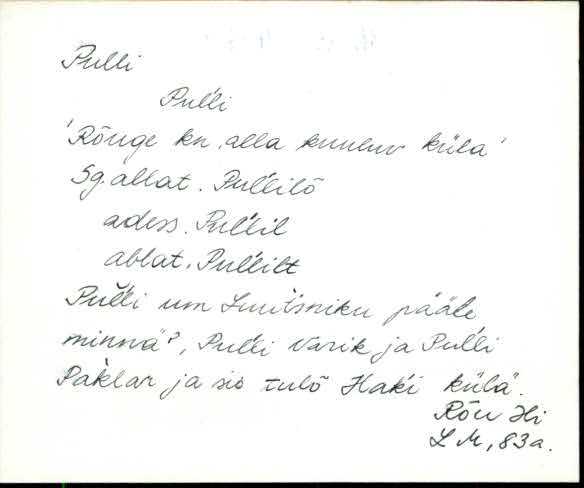 Pulli
Puĺĺi
'Rõuge kn. alla kuuluv küla'
Sg. allat. Puĺĺilõ
adess. Puĺĺil
ablat. Puĺĺilt
Puĺĺi um Luut́sniku pääle
minnä?, Puĺĺi Varik ja Puĺĺi
Paklar ja sio tulõ Haḱi külä.
Rõu Hi
L M, 83a.